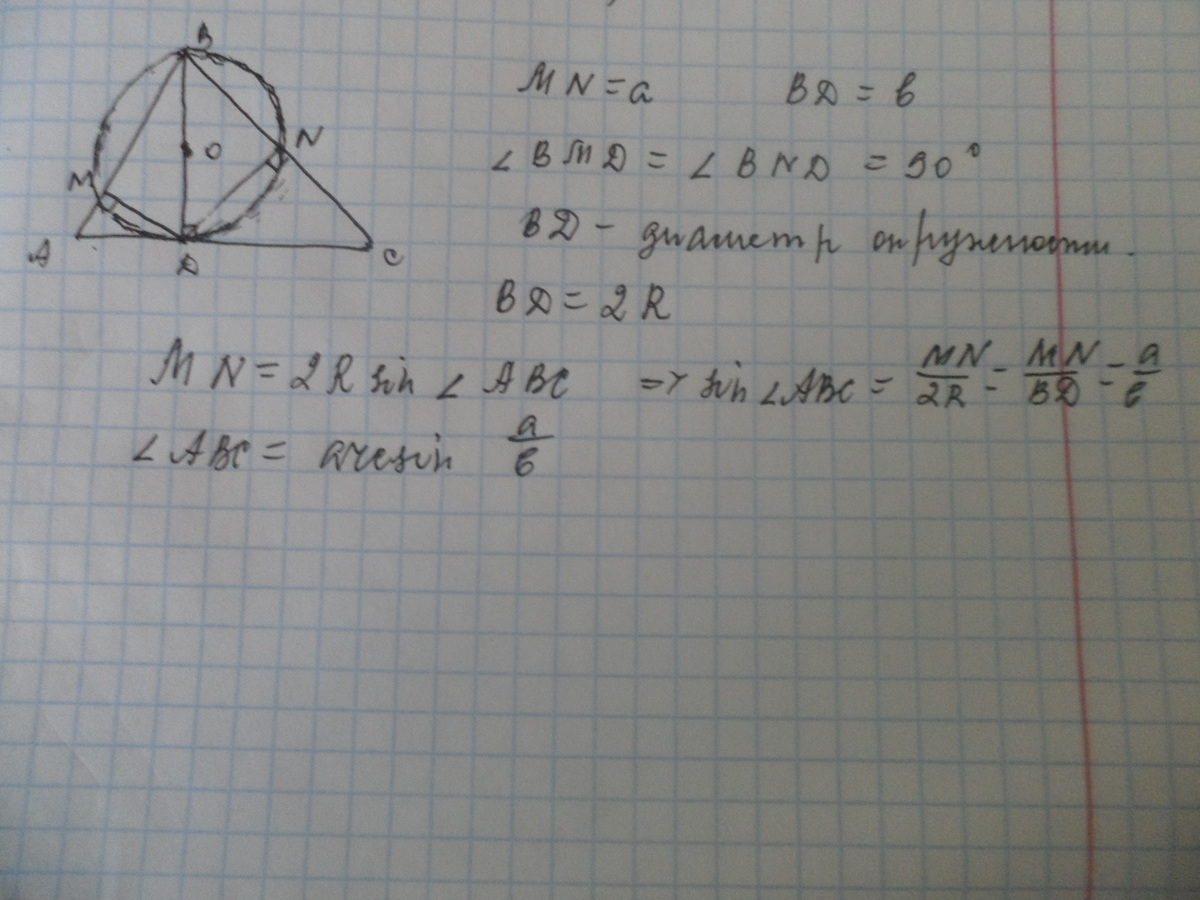 B
O
N
M
A
D
C
MN = a BD = b
∠BMD = ∠BND = 90°
BD – диаметр окружности.
BD = 2R
MN = 2R sin ∠ABC => sin ∠ABC = MN/2R = MN/BD = a/b
∠ABC = arcsin a/b